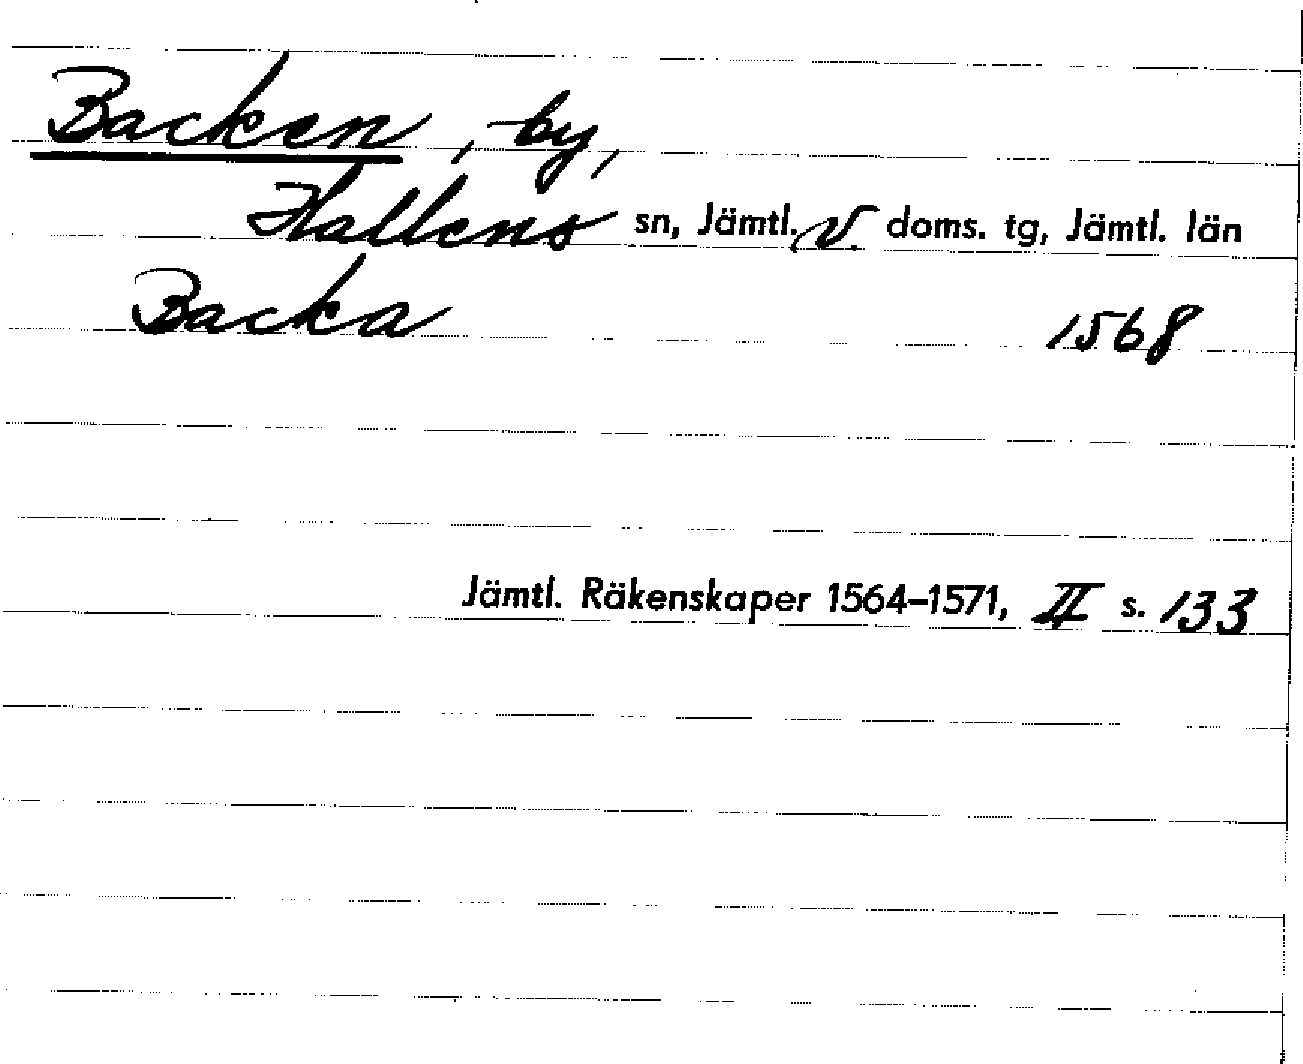 Backen, by,
Hallens sn, Jämtl. v. doms. tg, Jämtl. län
Backa 1568
Jämtl. Räkenskaper 1564–1571, II s. 133